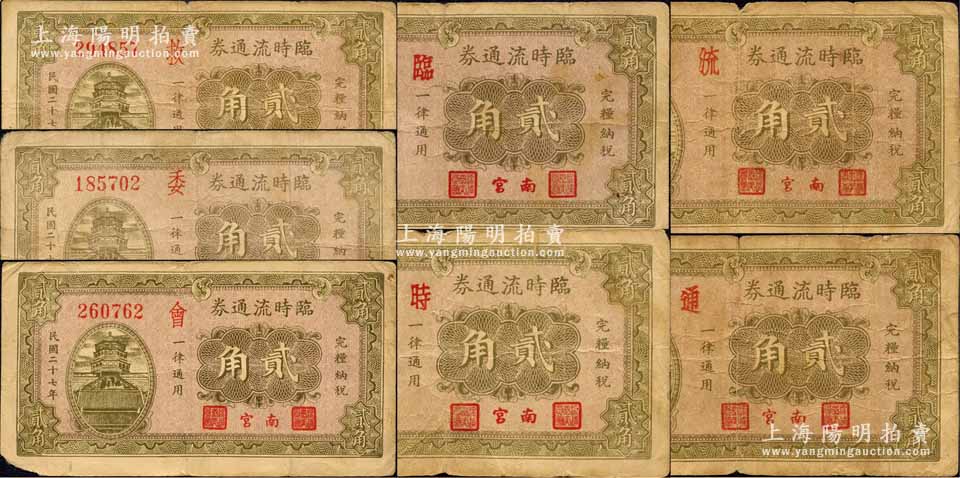 204857 救 臨時流通券
貳角
民國二十七
一律通用
貳角
完糧納稅
185702 委 臨時流通券
貳角
民國二十
一律通
貳角
260762 會 臨時流通券
貳角
貳角
民國二十七年
一律通用
貳角
完糧納稅
南宮
貳角
貳角
臨 臨時流通券
貳角
一律通用
貳角
完糧納稅
南宮
貳角
時 臨時流通券
貳角
一律通用
貳角
完糧納稅
南宮
貳角
流 臨時流通券
貳角
一律通用
貳角
完糧納稅
南宮
貳角
通 臨時流通券
貳角
一律通用
貳角
完糧納稅
南宮
貳角
上海陽明拍賣
www.yangmingauction.com
上海陽明拍賣
www.yangmingauction.com
上海陽明拍賣
www.yangmingauction.com